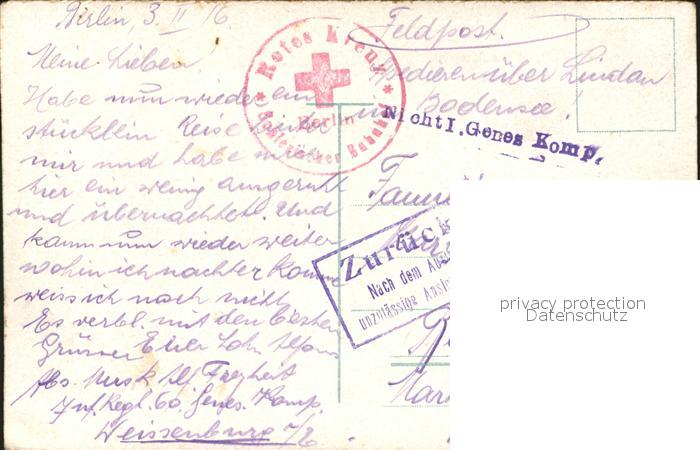 Berlin, 3. II 16
Meine Lieben!
Habe nun wieder ein
stücklein Reise hinter
mir und habe mich
hier ein wenig ausgeruht
und übernachtet. Und
kann nun wieder weiter
wohin ich nachher komme
weiss ich noch nicht
Es verbl. mit den besten
Grüssen Euer Sohn Alfons
Abs. Musk. Alf Freyheit
Inf. Regt. 60. Genes. Komp.
Weissenburg i/E
Rotes Kreuz
Berlin
Schlesischer Bahnhof
Feldpost.
über Lindau
Bodensee!
Nicht I. Genes Komp.
Zurück
Nach dem
unzulässige
privacy protection
Datenschutz